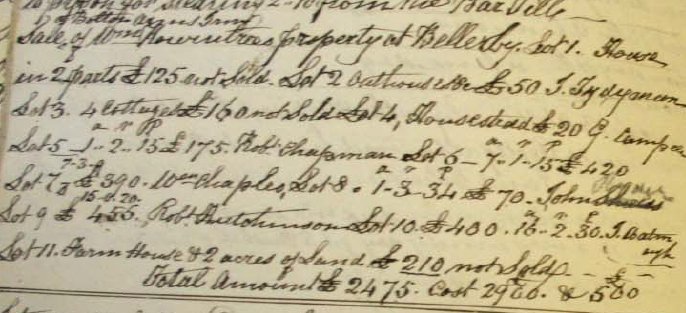 for stealing 2-10 from the Bar
of Bolton
Sale of Wm property at Bellerby. Lot 1. House
in 2 parts £ 125 not Sold. Lot 2 Outhouse &c £ 50 J. Tydyman
Lot 3. 4 Cottages £ 160 not Sold Lot 4, Housestead £ 20 G.
a r p
Lot 5 - 1 - 2 - 15 £ 175. Robt. Chapman Lot 6 - 7 - 1 - 15 £ 420
7-3-
a r p
Lot 7 £ 390. Wm Chaples, Lot 8. 1-3-34 £ 70. John
15. 0. 20.
Lot 9 £ 455. Robt. Hutchinson Lot 10. £ 400. 16-2-30. J.
Lot 11. Farm House & 2 acres of Land £ 210 not Sold
Total Amount £ 2475. Cost 2900. & 500